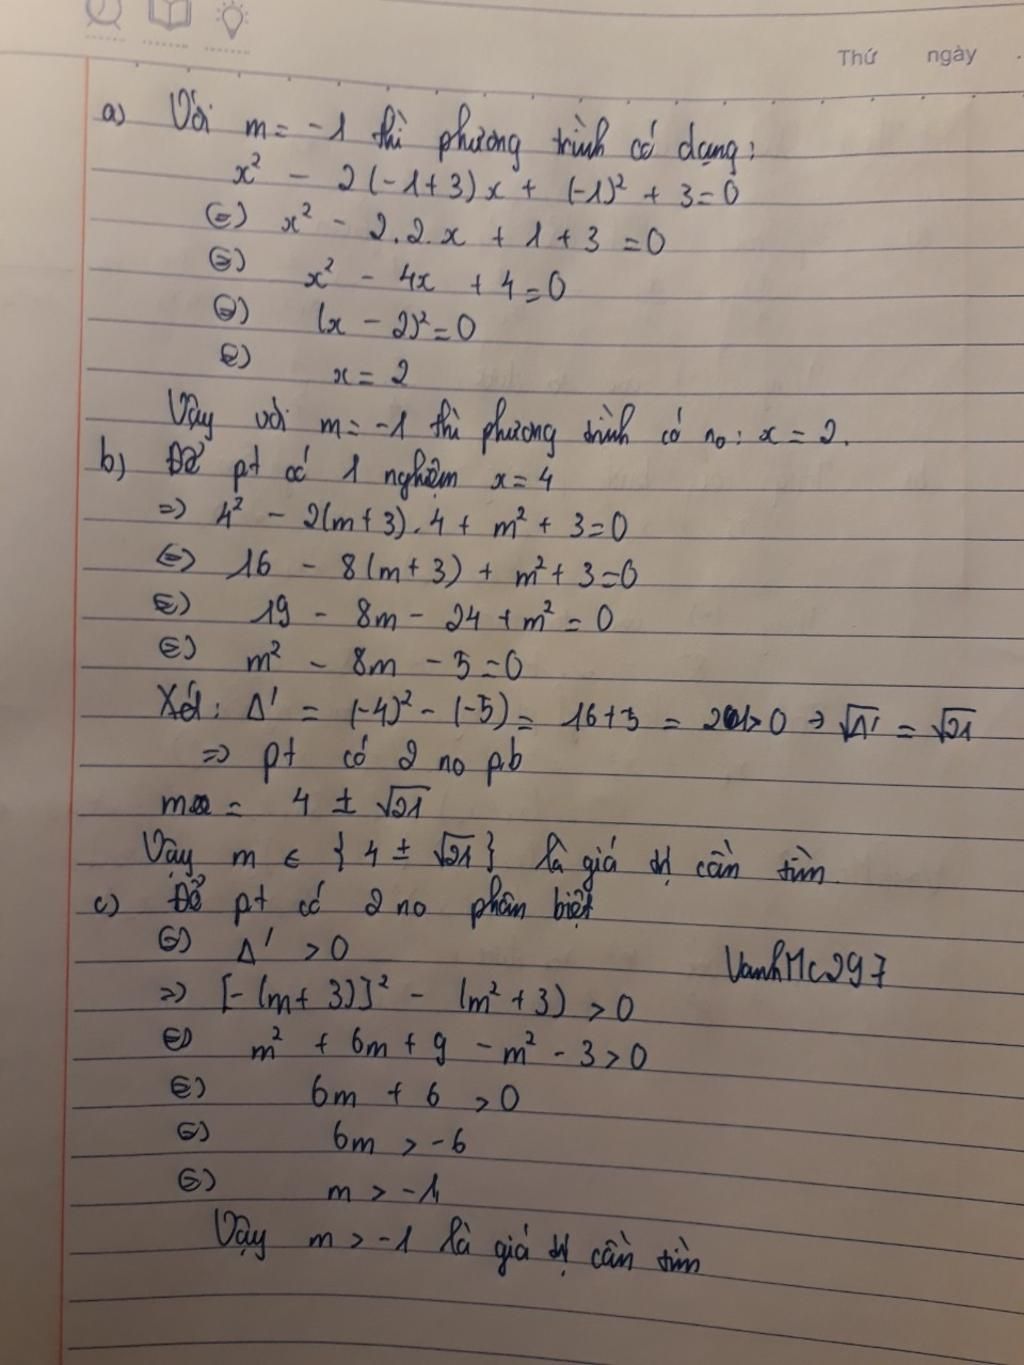 Thứ ngày
a) Với m = -1 thì phương trình có dạng:
x² - 2(-1+3)x + (-1)² + 3 = 0
(=) x² - 2.2.x + 1 + 3 = 0
(=) x² - 4x + 4 = 0
(=) (x - 2)² = 0
(=) x = 2
Vậy với m = -1 thì phương trình có no: x = 2.
b) Để pt có 1 nghiệm x = 4
=) 4² - 2(m+3).4 + m² + 3 = 0
(=) 16 - 8(m+3) + m² + 3 = 0
(=) 19 - 8m - 24 + m² = 0
(=) m² - 8m - 5 = 0
Xét: Δ' = (-4)² - (-5) = 16+5 = 21 > 0 => √Δ' = √21
=> pt có 2 no pb
m = 4 ± √21
Vậy m ∈ {4 ± √21} là giá trị cần tìm
c) Để pt có 2 no phân biệt
(=) Δ' > 0
VanhMc297
=) [-(m+3)]² - (m²+3) > 0
(=) m² + 6m + 9 - m² - 3 > 0
(=) 6m + 6 > 0
(=) 6m > -6
(=) m > -1
Vậy m > -1 là giá trị cần tìm